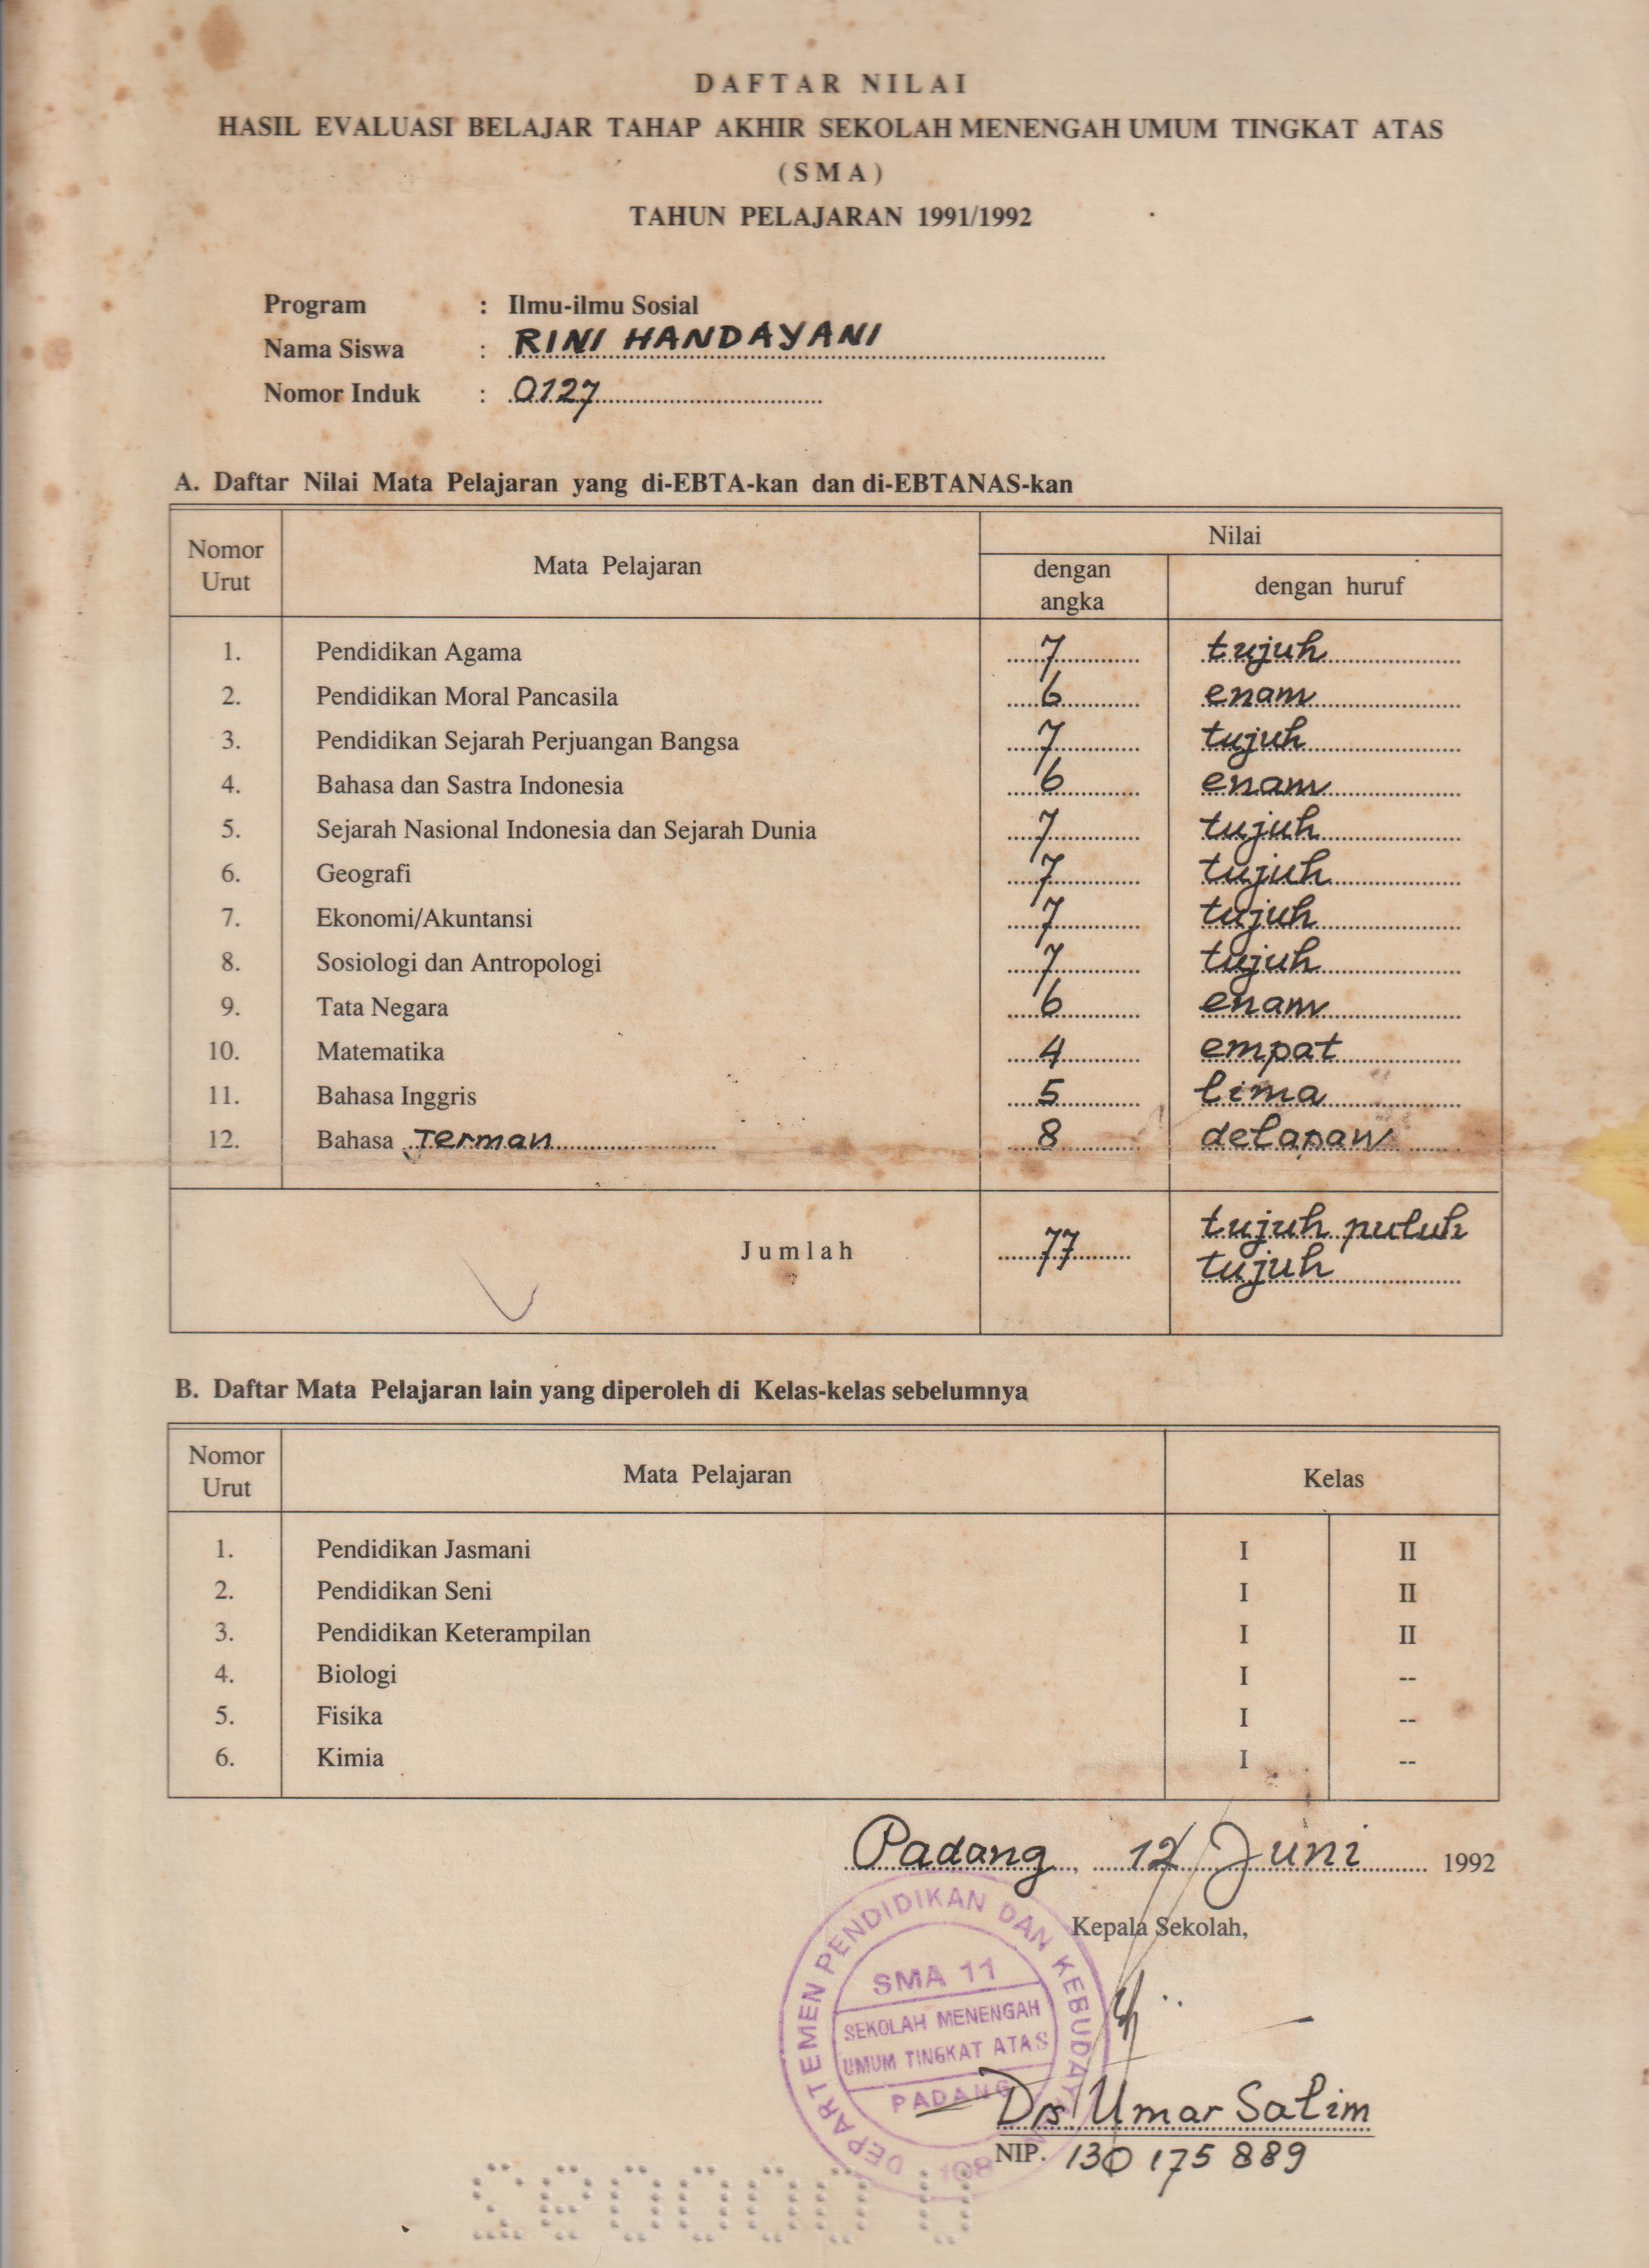 DAFTAR NILAI
HASIL EVALUASI BELAJAR TAHAP AKHIR SEKOLAH MENENGAH UMUM TINGKAT ATAS
(SMA)
TAHUN PELAJARAN 1991/1992
Program : Ilmu-ilmu Sosial
Nama Siswa : RINI HANDAYANI
Nomor Induk : 0127
A. Daftar Nilai Mata Pelajaran yang di-EBTA-kan dan di-EBTANAS-kan
Nomor Urut Mata Pelajaran Nilai
dengan angka dengan huruf
1. Pendidikan Agama 7 tujuh
2. Pendidikan Moral Pancasila 6 enam
3. Pendidikan Sejarah Perjuangan Bangsa 7 tujuh
4. Bahasa dan Sastra Indonesia 6 enam
5. Sejarah Nasional Indonesia dan Sejarah Dunia 7 tujuh
6. Geografi 7 tujuh
7. Ekonomi/Akuntansi 7 tujuh
8. Sosiologi dan Antropologi 7 tujuh
9. Tata Negara 6 enam
10. Matematika 4 empat
11. Bahasa Inggris 5 lima
12. Bahasa Jerman 8 delapan
Jumlah 77 tujuh puluh
tujuh
B. Daftar Mata Pelajaran lain yang diperoleh di Kelas-kelas sebelumnya
Nomor Urut Mata Pelajaran Kelas
1. Pendidikan Jasmani I II
2. Pendidikan Seni I II
3. Pendidikan Keterampilan I II
4. Biologi I --
5. Fisika I --
6. Kimia I --
Padang, 12 Juni 1992
Kepala Sekolah,
DEPARTEMEN PENDIDIKAN DAN KEBUDAYAAN
SMA 11
SEKOLAH MENENGAH
UMUM TINGKAT ATAS
PADANG
108
Drs. Umar Salim
NIP. 130 175 889